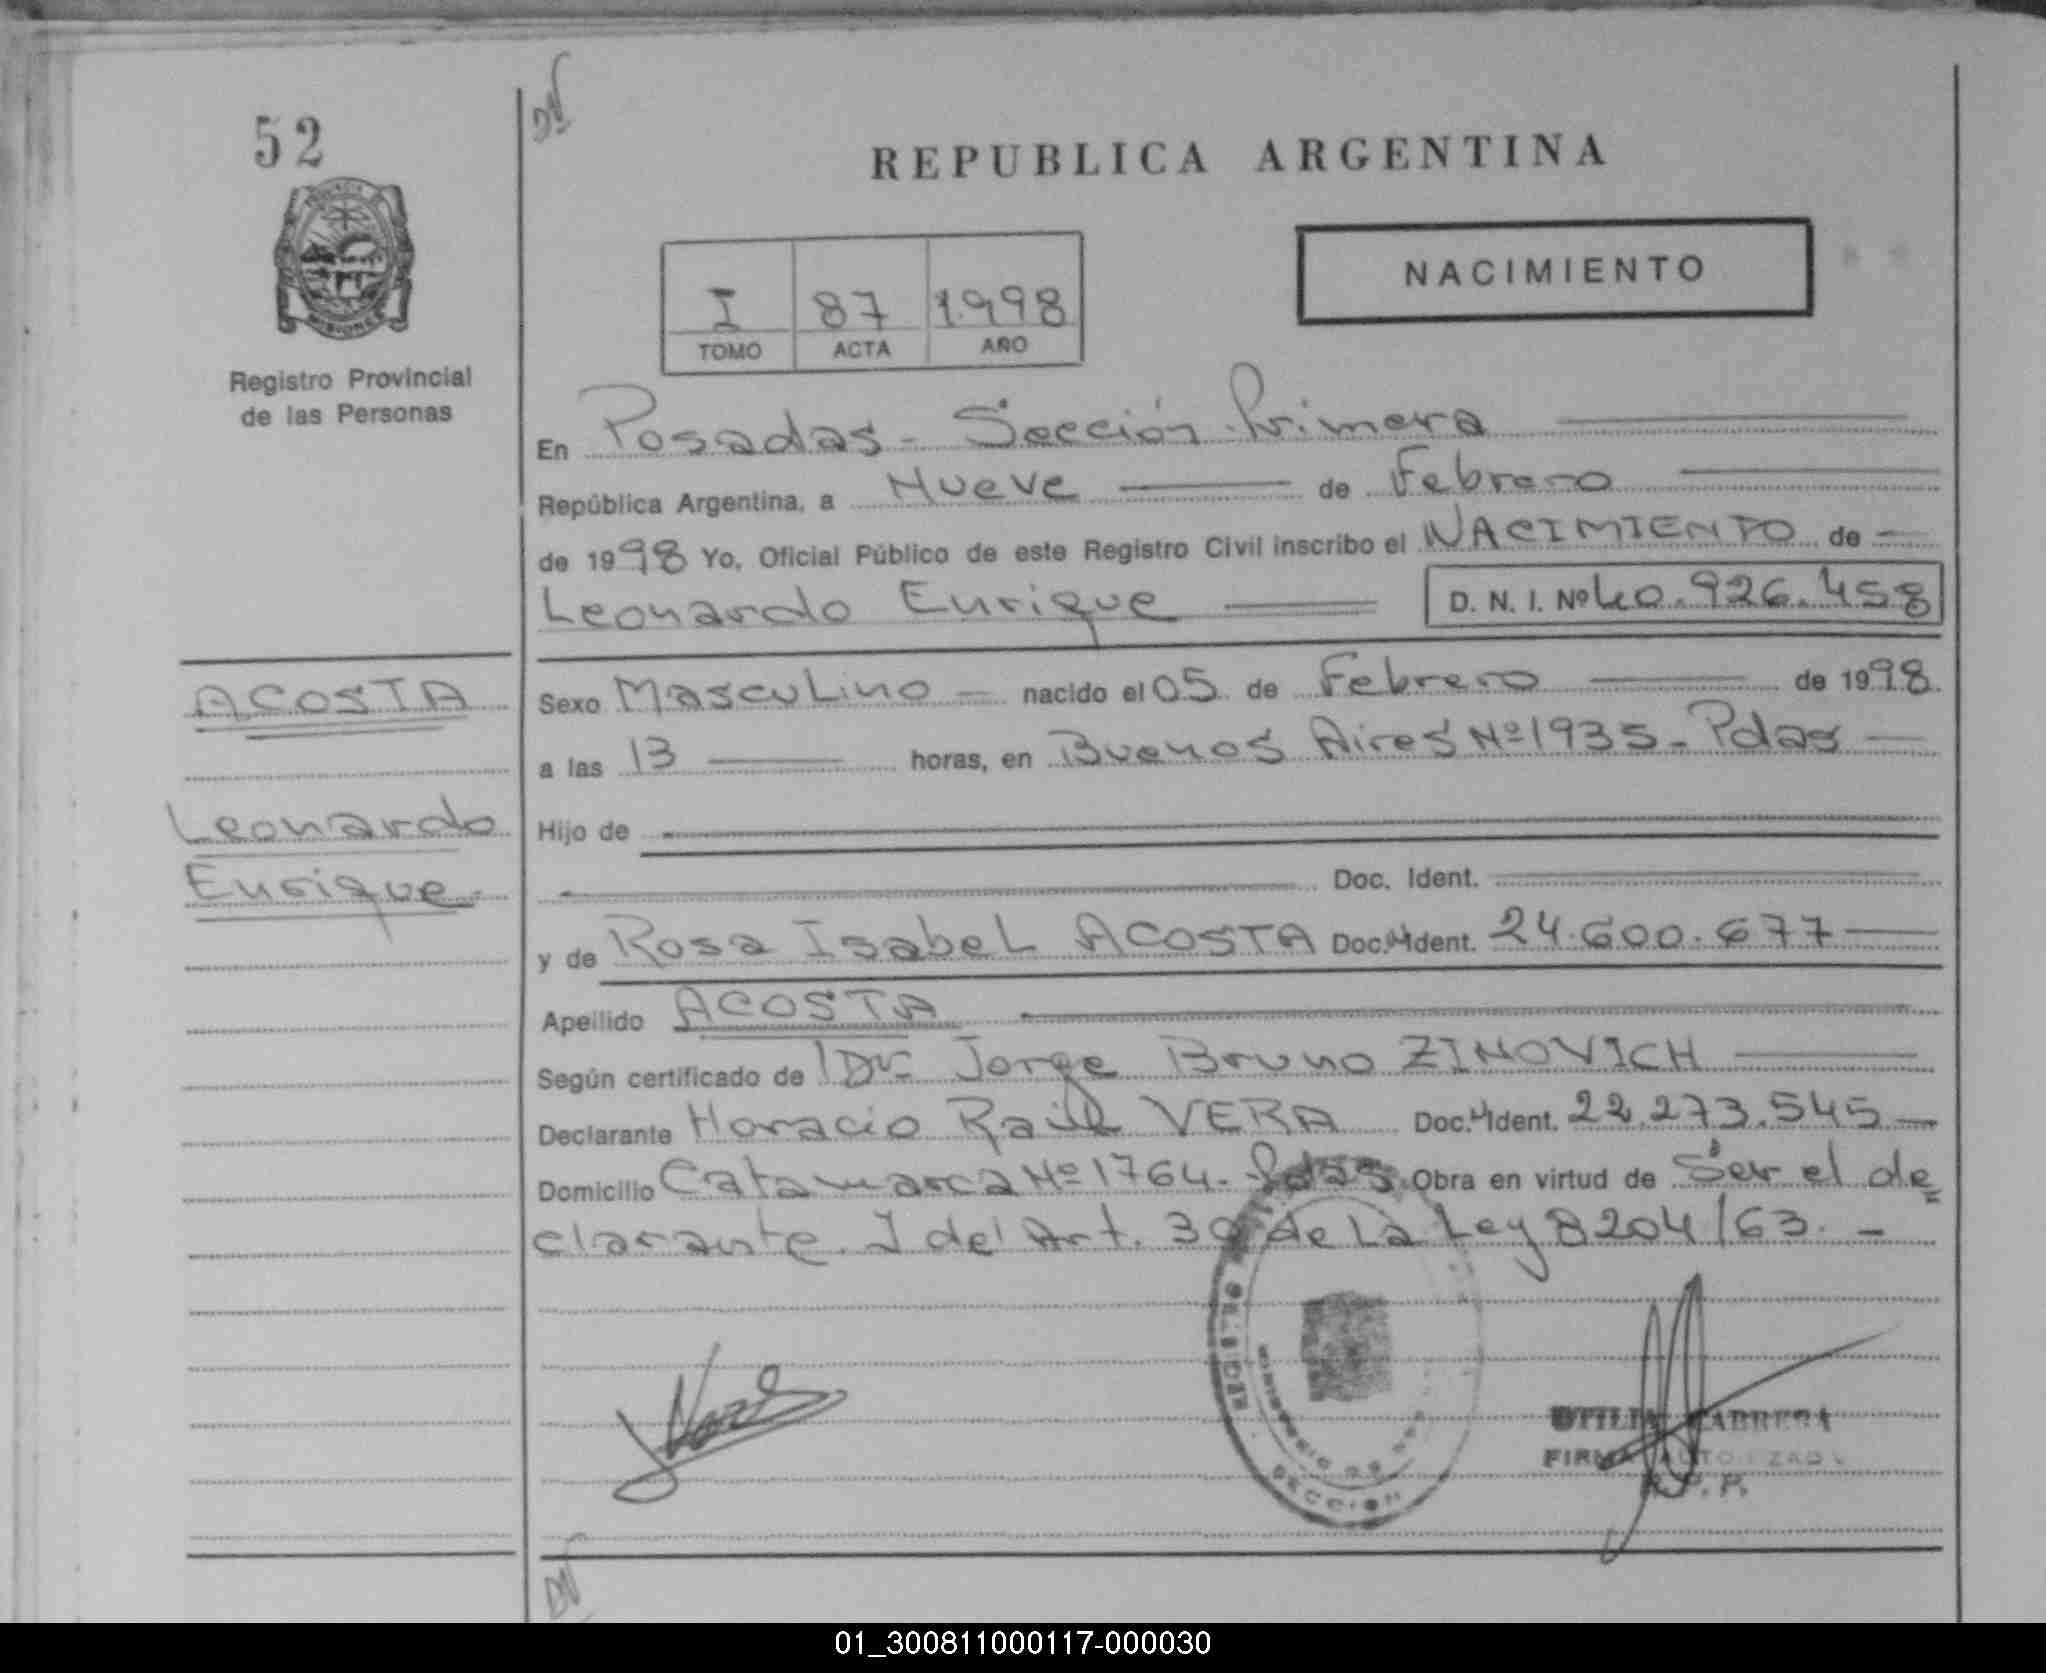 52
REPUBLICA ARGENTINA
NACIMIENTO
I 87 1998
TOMO ACTA AÑO
MISIONES
Registro Provincial
de las Personas
En Posadas - Sección Primera
República Argentina, a Nueve de Febrero
de 1998 Yo, Oficial Público de este Registro Civil inscribo el NACIMIENTO de
Leonardo Enrique D. N. I. Nº 40.926.458
ACOSTA
Leonardo
Enrique.
Sexo Masculino nacido el 05 de Febrero de 1998
a las 13 horas, en Buenos Aires Nº 1935 - Pdas
Hijo de
Doc. Ident.
y de Rosa Isabel ACOSTA Doc. Ident. 24.600.677
Apellido ACOSTA
Según certificado de Dr. Jorge Bruno ZINOVICH
Declarante Horacio Raúl VERA Doc. Ident. 22.273.545
Domicilio Catamarca Nº 1764. Pdas. Obra en virtud de Ser el de=
clarante. I del Art. 30 de La Ley 8204/63. -
SECCION
OTILIA CABRERA
FIRMA AUTORIZADA
R.P.P.
01_300811000117-000030